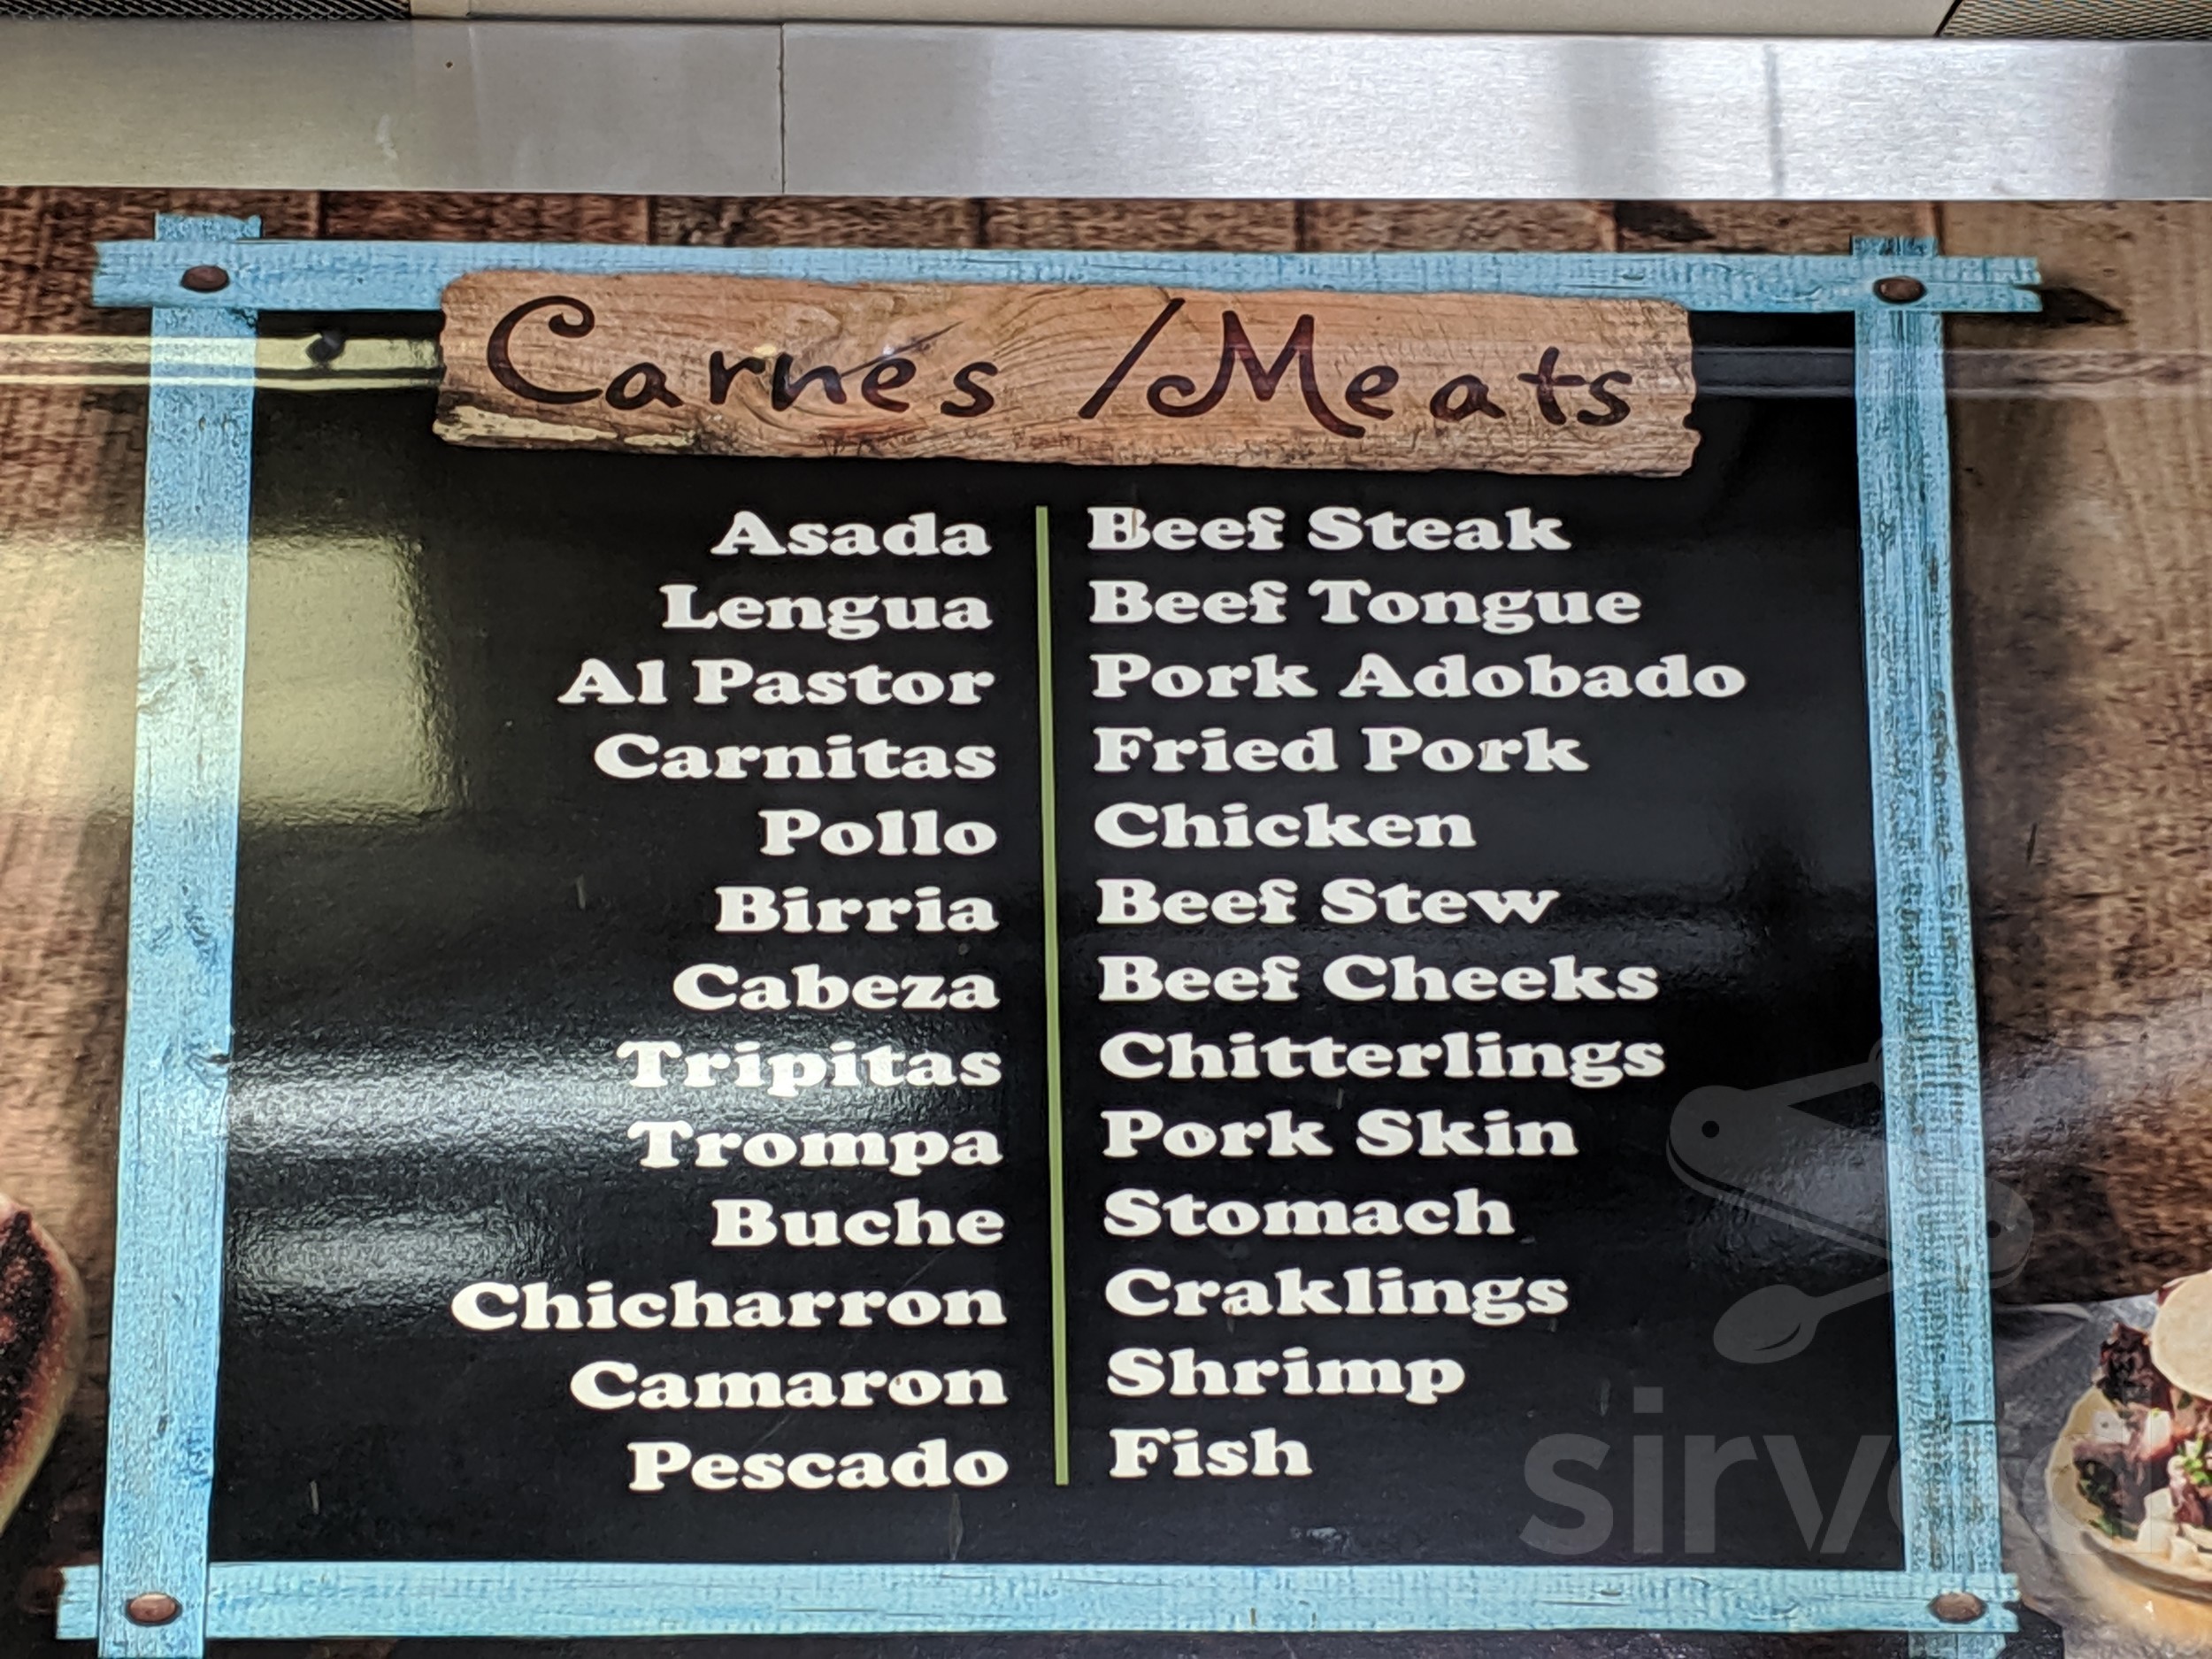 Carnes / Meats
Asada Beef Steak
Lengua Beef Tongue
Al Pastor Pork Adobado
Carnitas Fried Pork
Pollo Chicken
Birria Beef Stew
Cabeza Beef Cheeks
Tripitas Chitterlings
Trompa Pork Skin
Buche Stomach
Chicharron Craklings
Camaron Shrimp
Pescado Fish
sirved